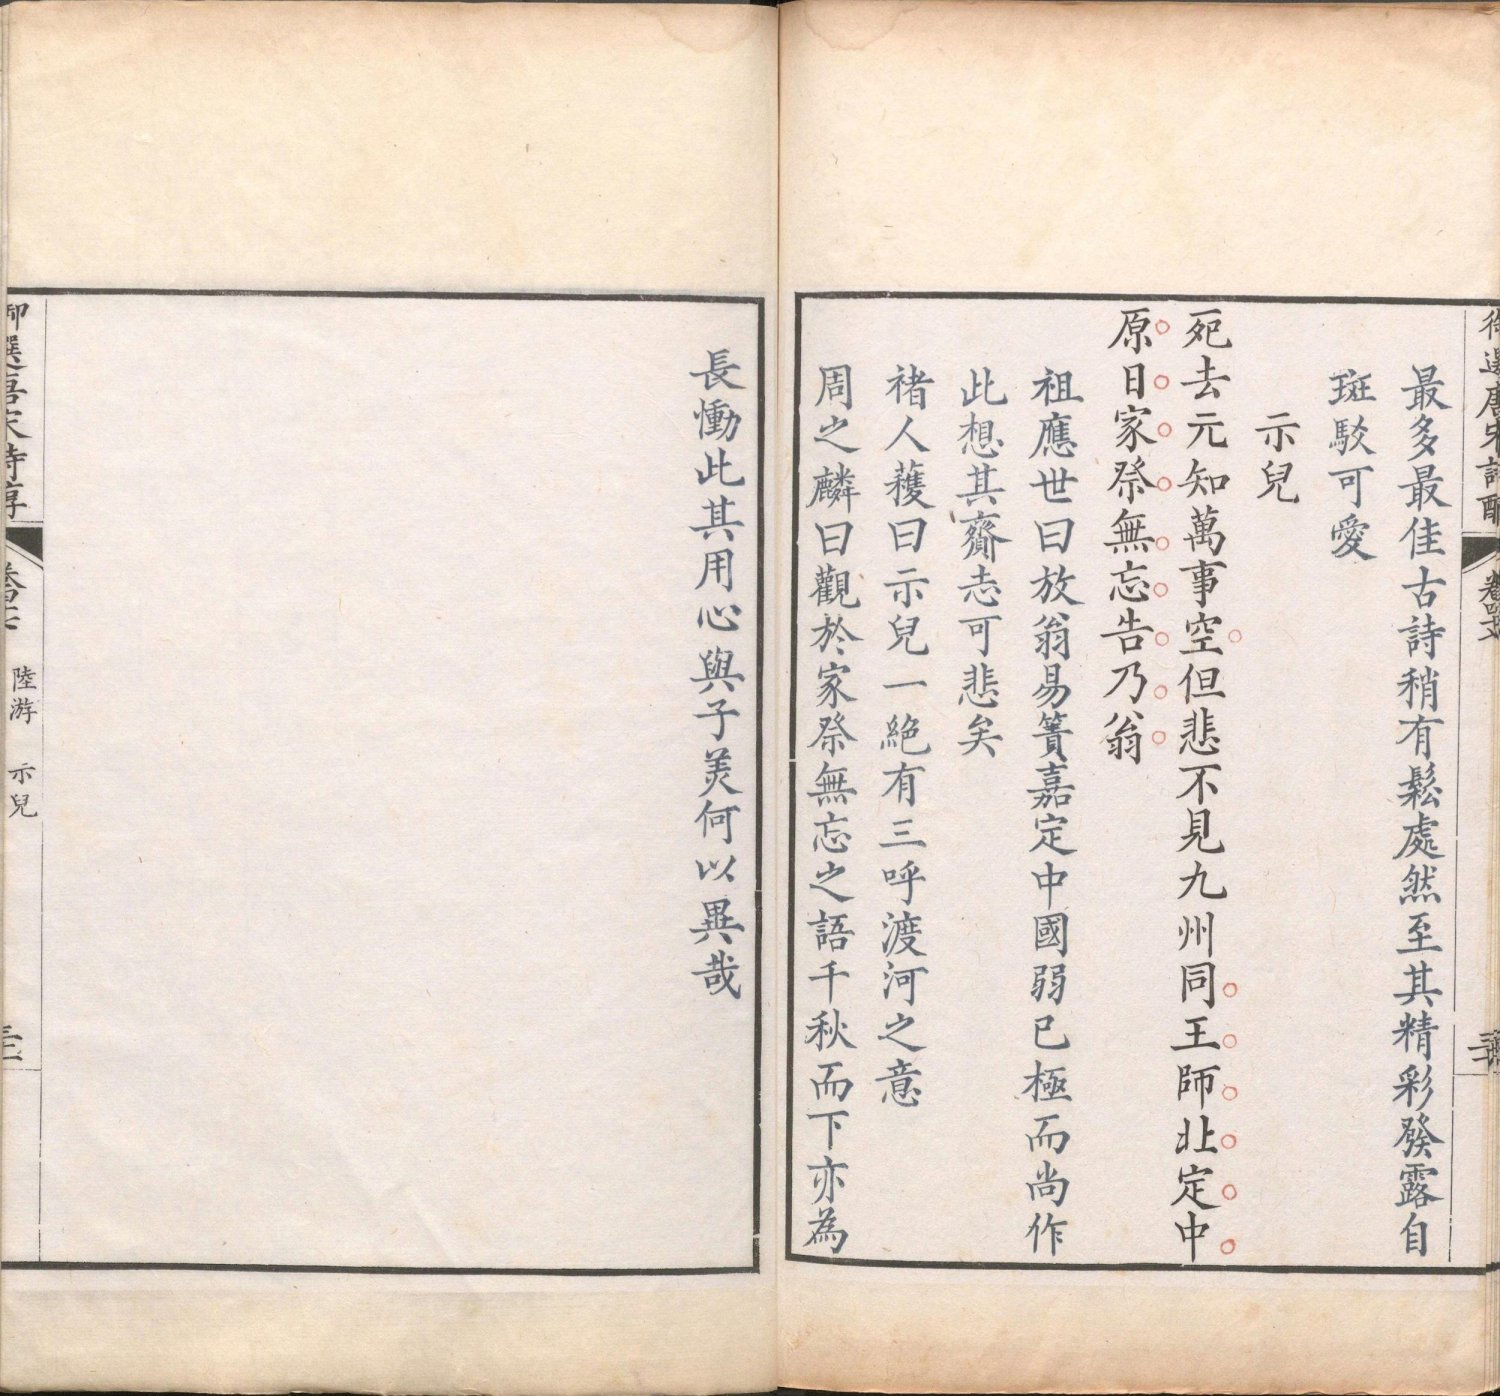 最多最佳古詩稍有鬆處然至其精彩發露自
斑駁可愛
示兒
死去元知萬事空但悲不見九州同王師北定中
原日家祭無忘告乃翁
祖應世曰放翁易簀嘉定中國弱已極而尚作
此想其齎志可悲矣
褚人蘀曰示兒一絕有三呼渡河之意
周之麟曰觀於家祭無忘之語千秋而下亦為
長慟此其用心與子美何以異哉
御選唐宋詩醇
卷四十七
陸游 示兒